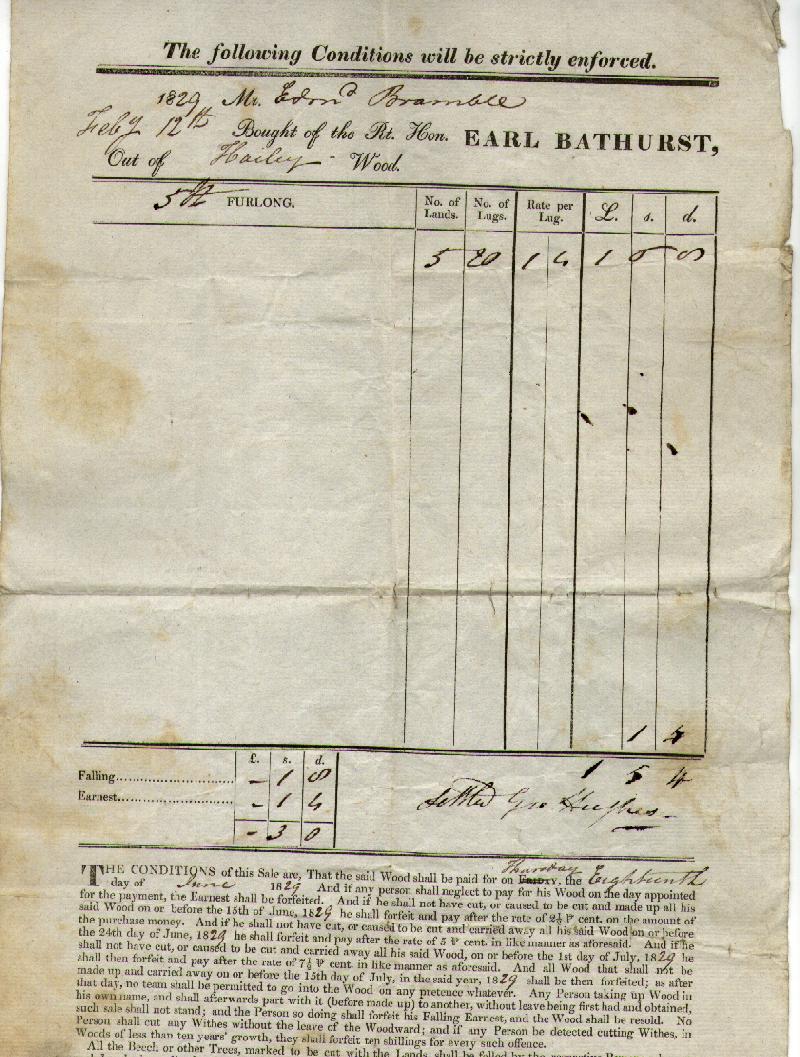 The following Conditions will be strictly enforced.
1829 Mr. Edmd Bramble
Feby 12th Bought of the Rt. Hon. EARL BATHURST,
Out of Hailey Wood.
5th FURLONG. No. of Lands. No. of Lugs. Rate per Lug. £. s. d.
5 20 1 4 1 6 8
1 4
£. s. d. 1 5 4
Falling - 1 8
Earnest - 1 4 Settled Geo Hughes
- 3 0
THE CONDITIONS of this Sale are, That the said Wood shall be paid for on FRIDAY, Thursday the Eighteenth
day of June 1829 And if any person shall neglect to pay for his Wood on the day appointed
for the payment, the Earnest shall be forfeited. And if he shall not have cut, or caused to be cut and made up all his
said Wood on or before the 15th of June, 1829 he shall forfeit and pay after the rate of 2½ ⅌ cent. on the amount of
the purchase money. And if he shall not have cut, or caused to be cut and carried away all his said Wood on or before
the 24th day of June, 1829 he shall forfeit and pay after the rate of 5 ⅌ cent. in like manner as aforesaid. And if he
shall not have cut, or caused to be cut and carried away all his said Wood, on or before the 1st day of July, 1829 he
shall then forfeit and pay after the rate of 7½ ⅌ cent. in like manner as aforesaid. And all Wood that shall not be
made up and carried away on or before the 15th day of July, in the said year, 1829 shall be then forfeited; as after
that day, no team shall be permitted to go into the Wood on any pretence whatever. Any Person taking up Wood in
his own name, and shall afterwards part with it (before made up) to another, without leave being first had and obtained,
such sale shall not stand; and the Person so doing shall forfeit his Falling Earnest, and the Wood shall be resold. No
Person shall cut any Withes without the leave of the Woodward; and if any Person be detected cutting Withes, in
Woods of less than ten years' growth, they shall forfeit ten shillings for every such offence.
All the Beech or other Trees, marked to be cut with the Lands, shall be felled by the respective